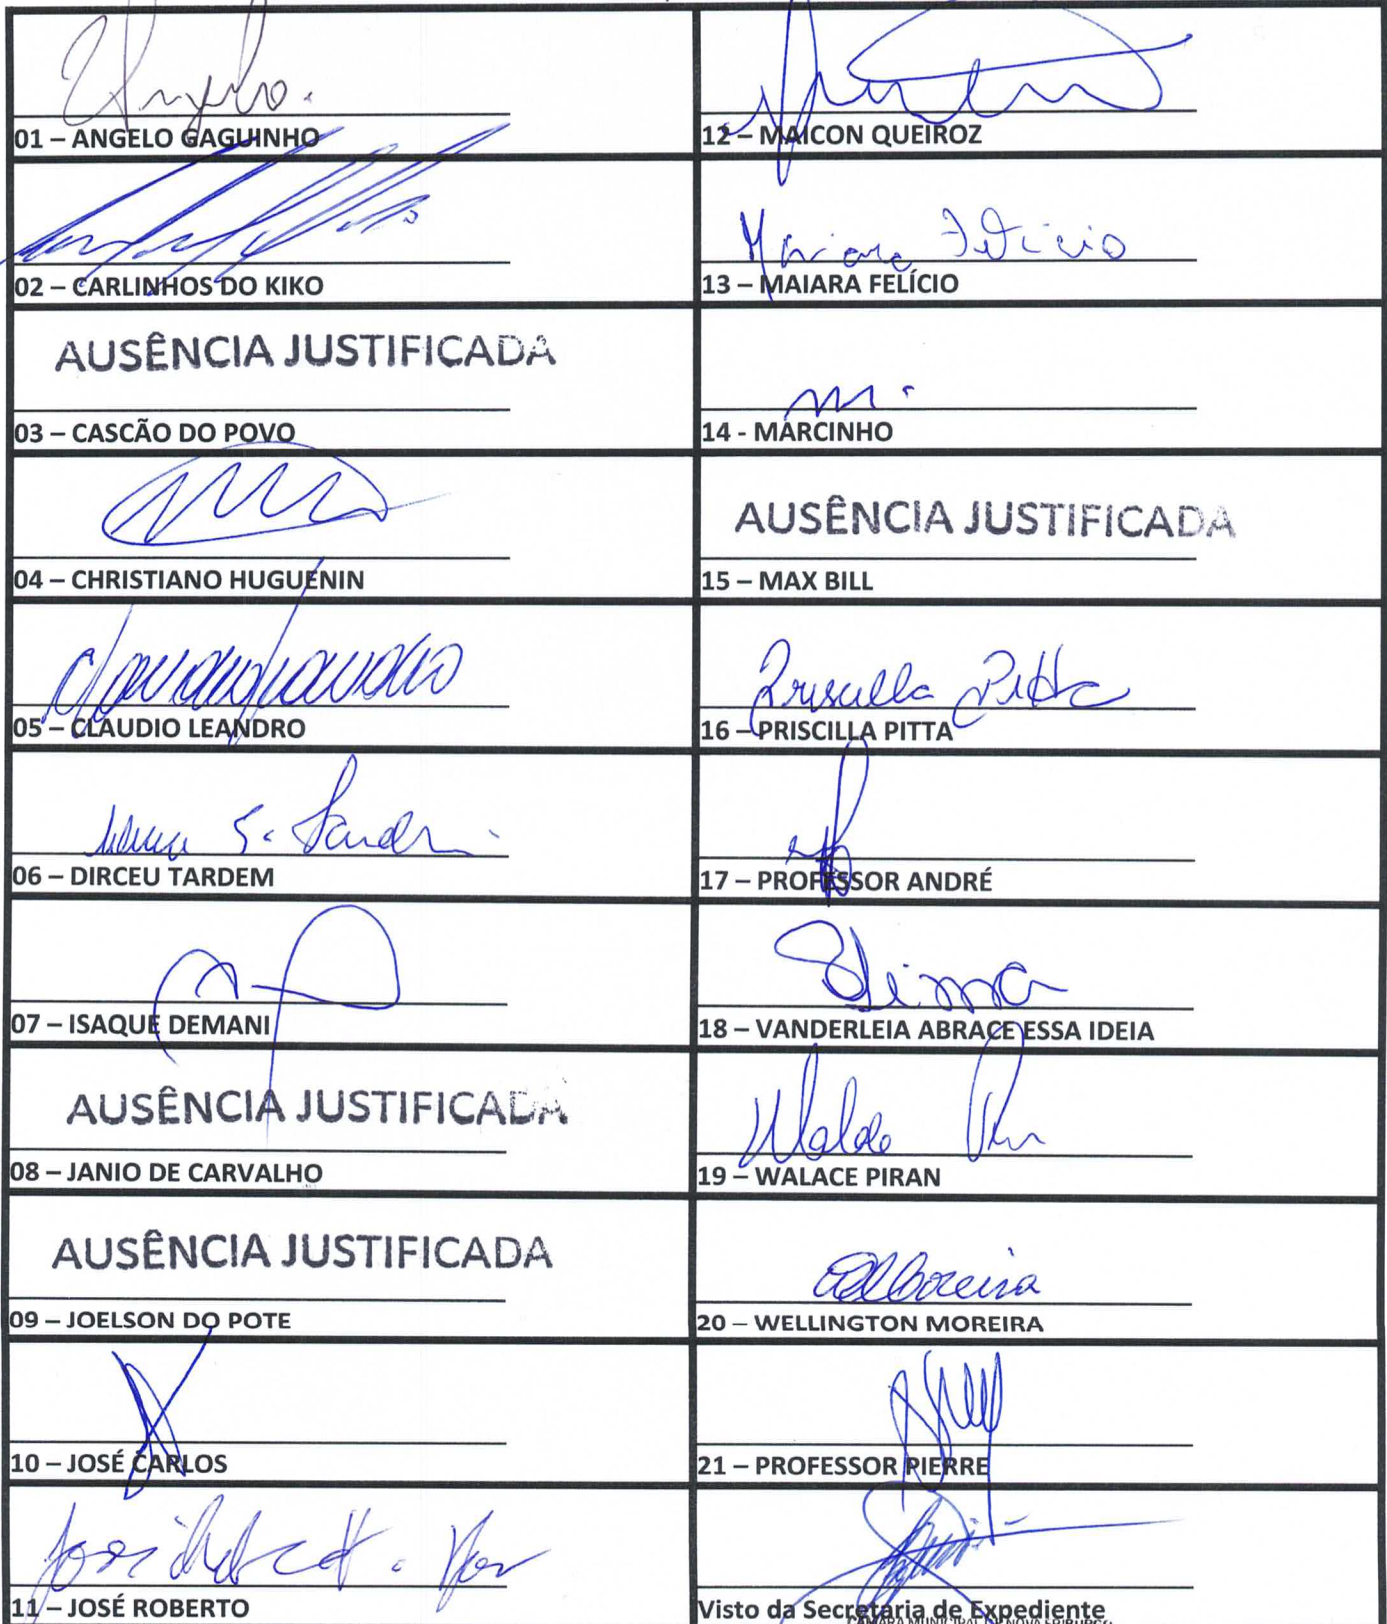 Angelo.
01 – ANGELO GAGUINHO
02 – CARLINHOS DO KIKO
AUSÊNCIA JUSTIFICADA
03 – CASCÃO DO POVO
04 – CHRISTIANO HUGUENIN
05 – CLAUDIO LEANDRO
06 – DIRCEU TARDEM
07 – ISAQUE DEMANI
AUSÊNCIA JUSTIFICADA
08 – JANIO DE CARVALHO
AUSÊNCIA JUSTIFICADA
09 – JOELSON DO POTE
10 – JOSÉ CARLOS
11 – JOSÉ ROBERTO
12 – MAICON QUEIROZ
Maiara Felicio
13 – MAIARA FELÍCIO
14 - MARCINHO
AUSÊNCIA JUSTIFICADA
15 – MAX BILL
Priscilla Pitta
16 – PRISCILLA PITTA
17 – PROFESSOR ANDRÉ
18 – VANDERLEIA ABRACE ESSA IDEIA
19 – WALACE PIRAN
20 – WELLINGTON MOREIRA
21 – PROFESSOR PIERRE
Visto da Secretaria de Expediente
CÂMARA MUNICIPAL DE NOVA FRIBURGO